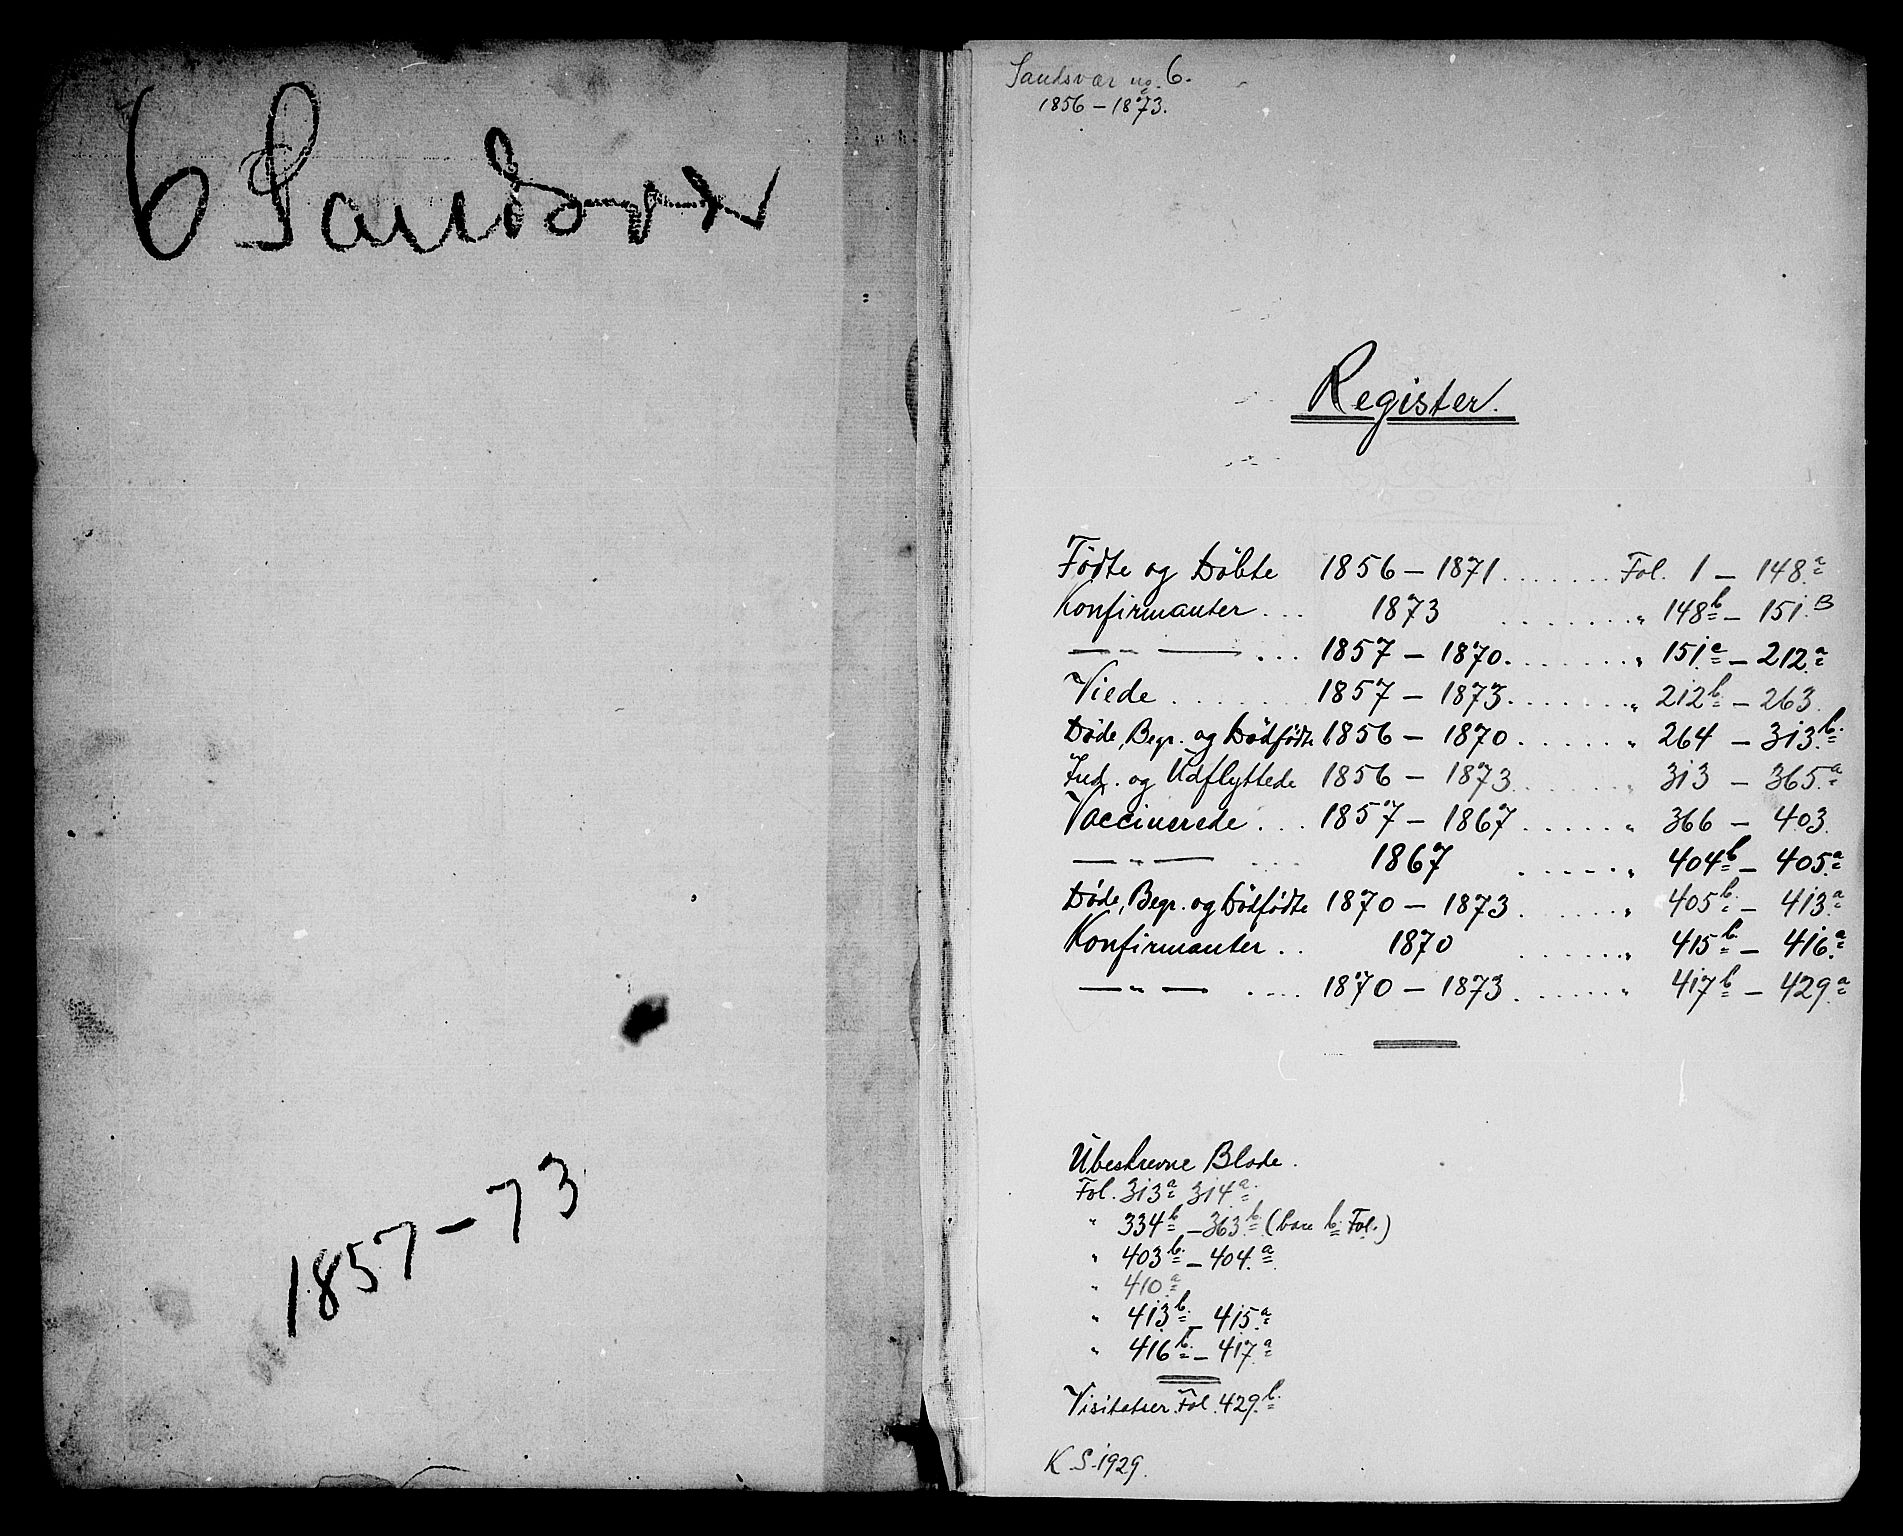 6 Sandsvær
1857-73
Sandsvær no. 6.
1856-1873.
Register.
Fødte og Døbte 1856 - 1871. . . . . . . Fol. 1 - 148.a
Konfirmanter . . . 1873 . . . . . . . „ 148b - 151.B
— „ — . . . 1857 - 1870. . . . . . . „ 151.a - 212.a
Viede . . . . . . . 1857 - 1873. . . . . . . „ 212b - 263.
Døde, Begr. og Dødfødte 1856 - 1870 . . . . . . „ 264 - 313.b
Ind. og Udflyttede 1856 - 1873. . . . . . . „ 313 - 365.a
Vaccinerede . . . 1857 - 1867 . . . . . . „ 366 - 403.
— „ — . . . 1867 . . . . . „ 404b - 405.a
Døde, Begr. og Dødfødte 1870 - 1873 . . . . . . „ 405b. - 413.a
Konfirmanter . . 1870 . . . . . . „ 415b - 416.a
— „ — . . . . 1870 - 1873 . . . . . . „ 417b - 429.a
Ubeskrevne Blade.
Fol. 313a 314a.
„ 334b - 363b. (bare b. Fol.)
„ 403b. - 404.a
„ 410.a
„ 413b. - 415.a
„ 416b. - 417.a
Visitatser Fol. 429.b.
K S. 1929.